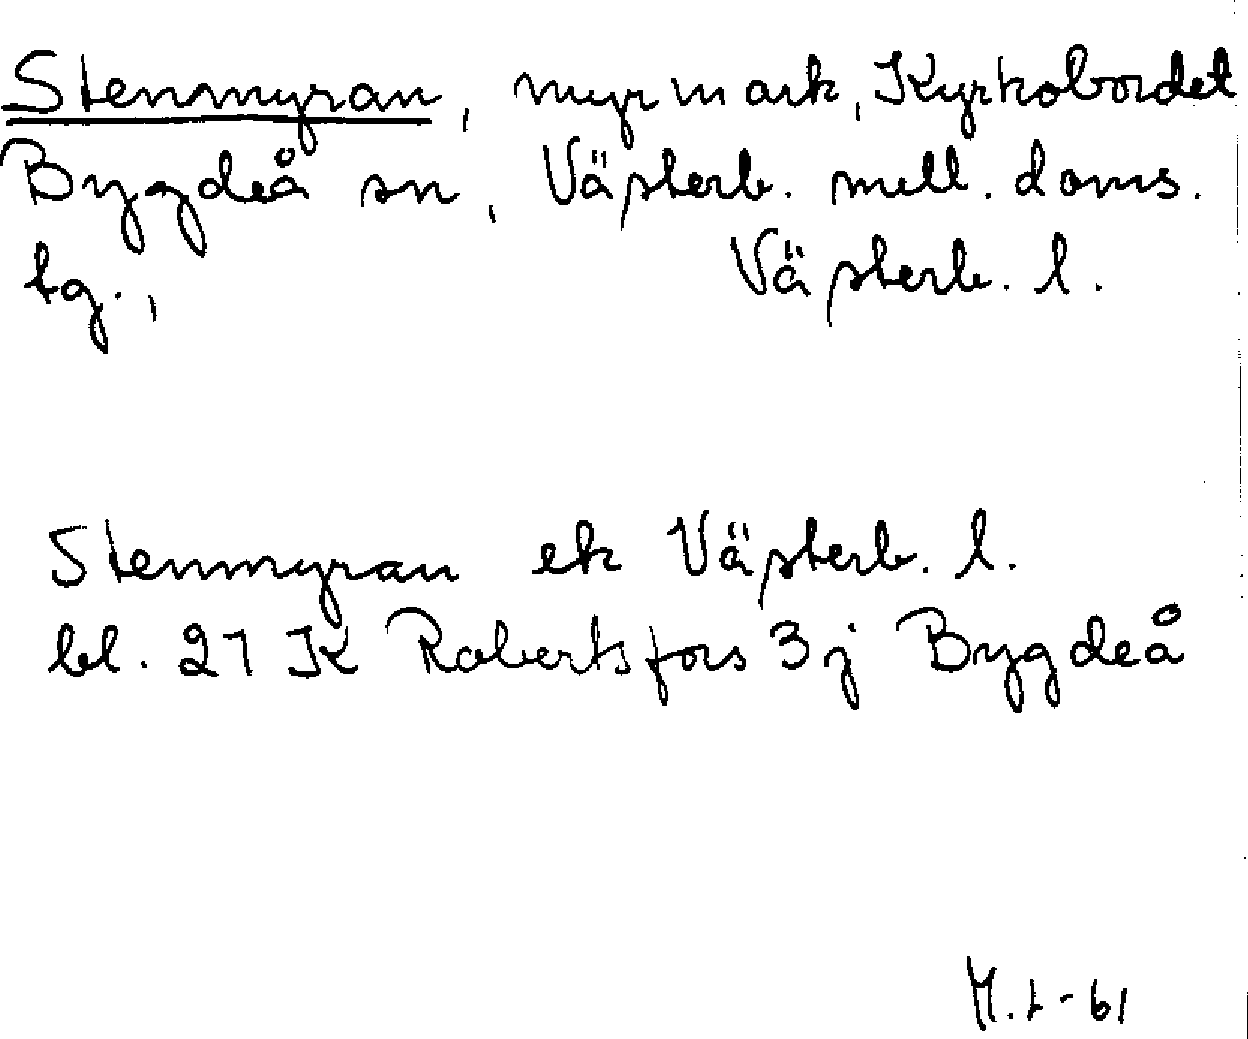 Stenmyran, myrmark, Kyrkobordet
Bygdeå sn, Västerb. mell. doms.
tg., Västerb. l.
Stenmyran ek Västerb. l.
bl. 21 K Robertsfors 3 j Bygdeå
M.L-61